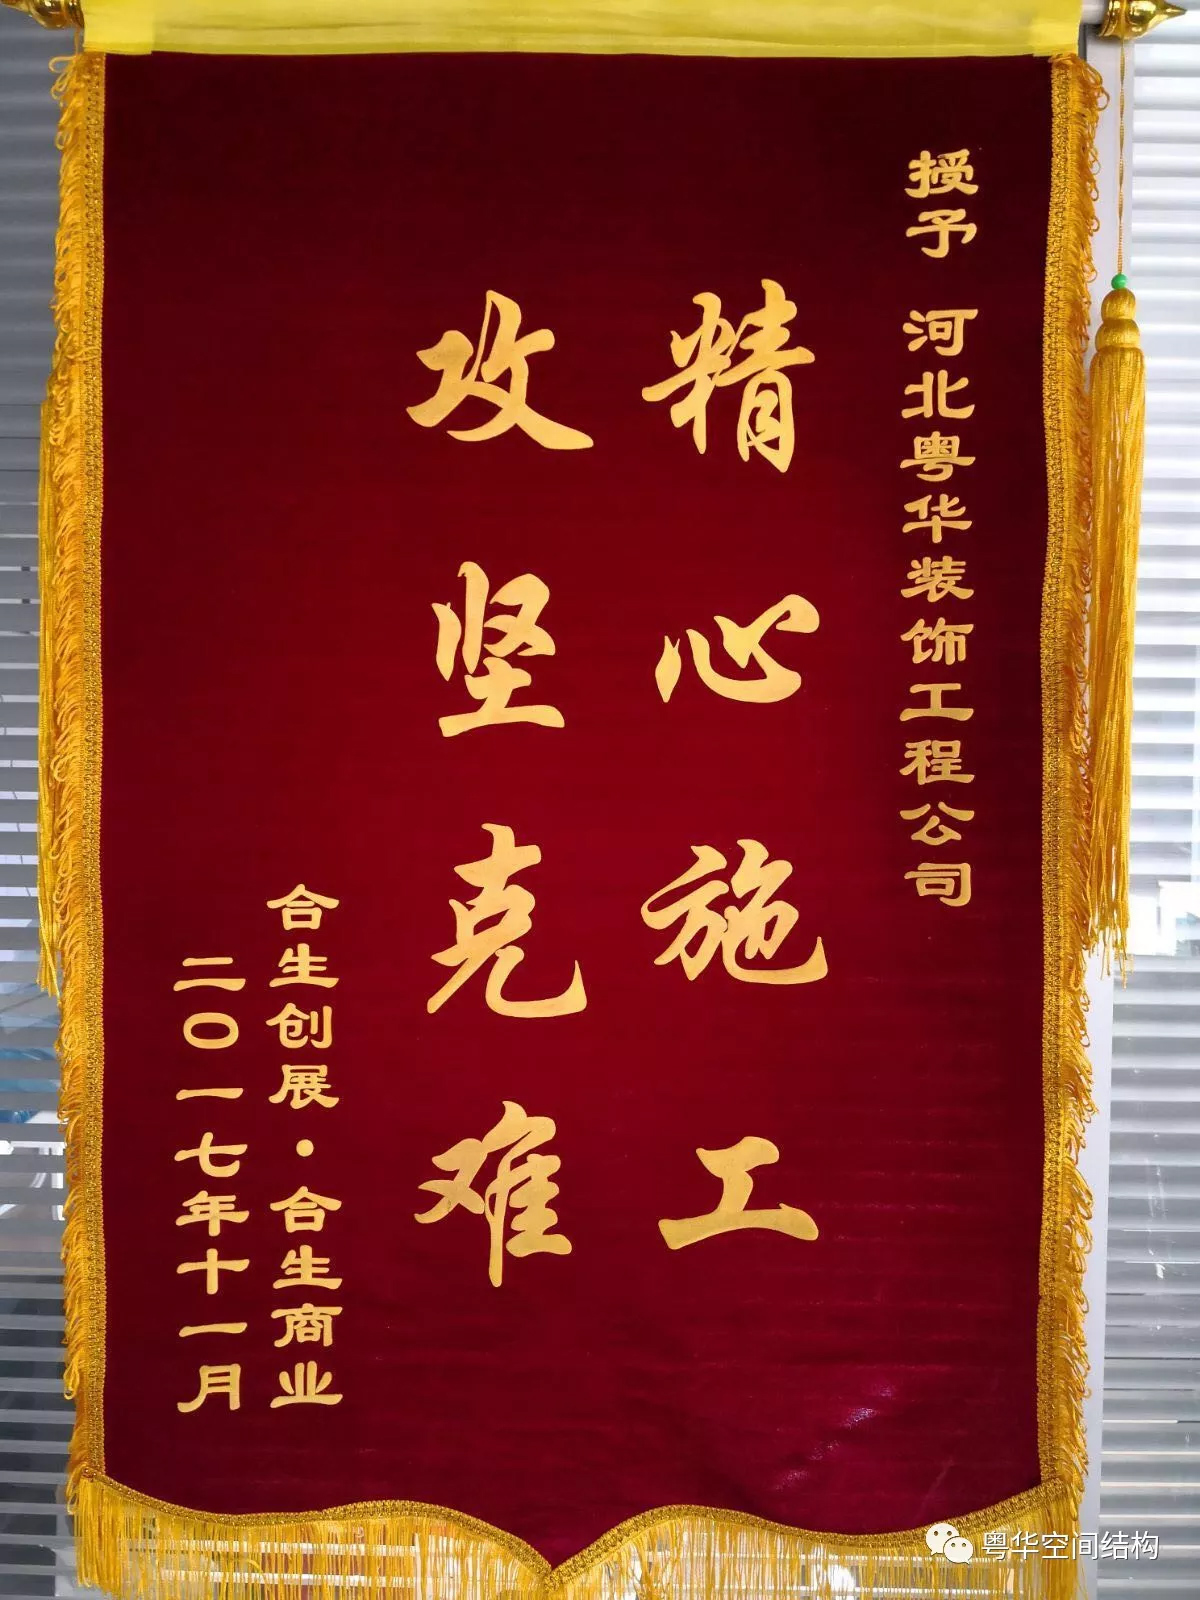 授予 河北粤华装饰工程公司
精心施工
攻坚克难
合生创展·合生商业
二〇一七年十一月
粤华空间结构